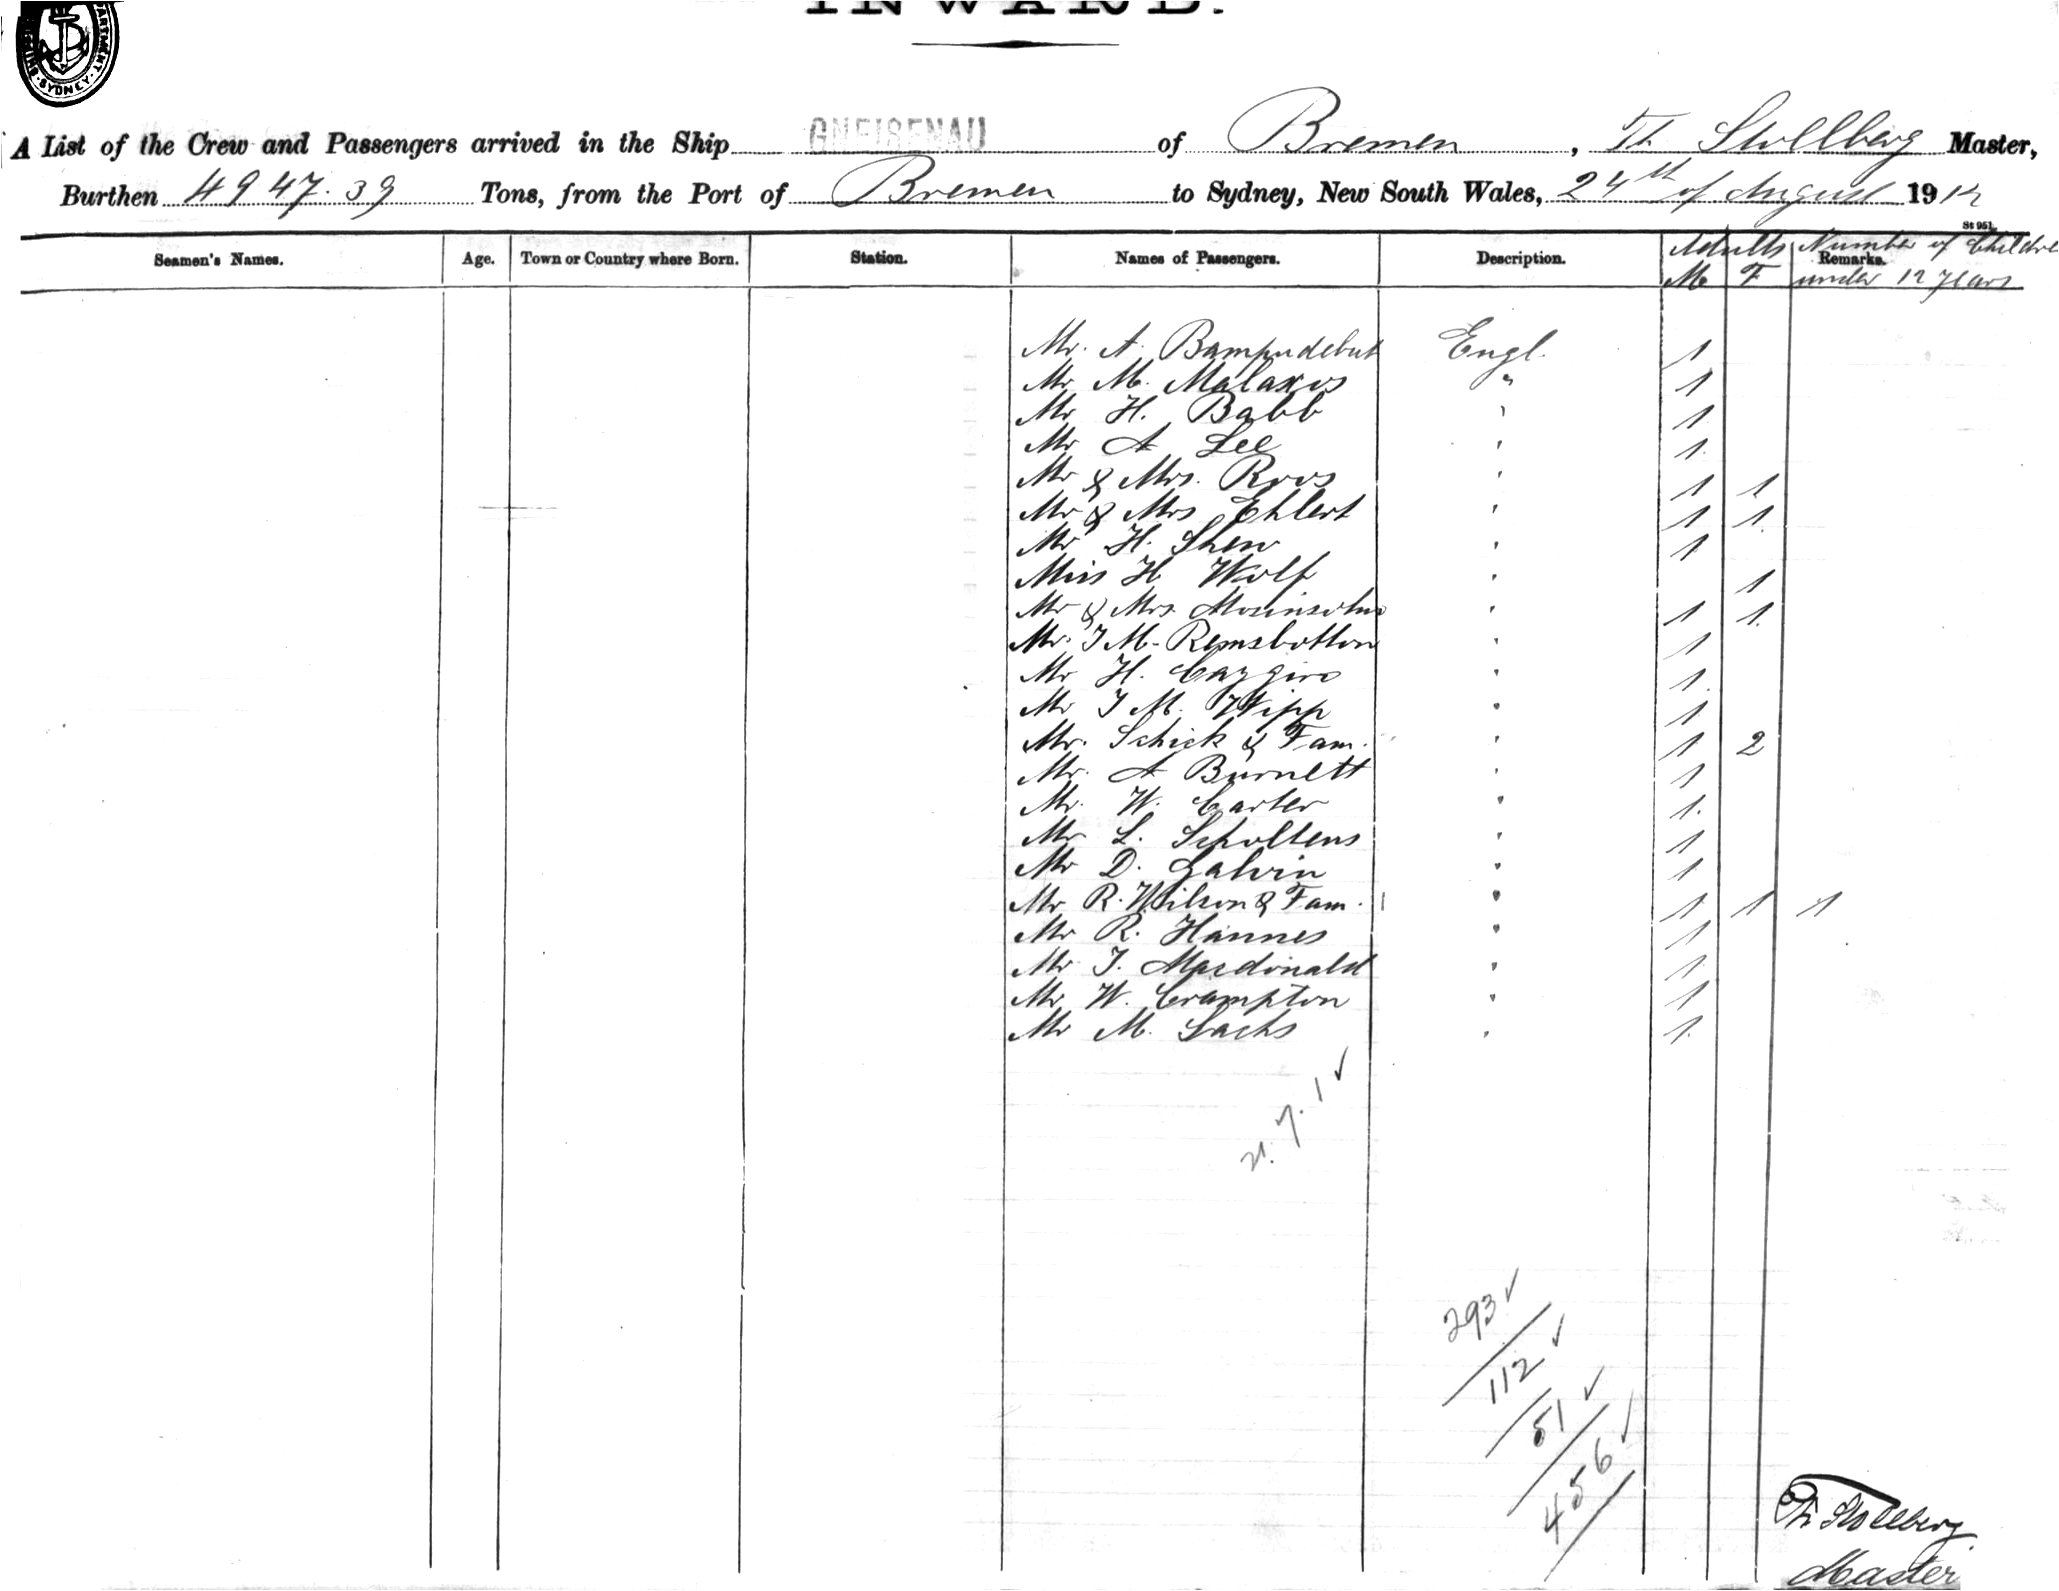 INWARD.
SYDNEY
A List of the Crew and Passengers arrived in the Ship GNEISENAU of Bremen, Th. Stollberg Master,
Burthen 4947.39 Tons, from the Port of Bremen to Sydney, New South Wales, 24th of August 1912
St 951.
Seamen's Names. Age. Town or Country where Born. Station. Names of Passengers. Description. Adults M F Remarks. Number of Childre under 12 years
Mr. A. Engl. 1
Mr M. Malaxos " 1
Mr H. Babb " 1
Mr A Lee " 1
Mr & Mrs. Roos " 1 1
Mr & Mrs Ehlert " 1 1
Mr H. Shew " 1
Miss H Wolf " 1
Mr & Mrs " 1 1
Mr. J M. Remsbottom " 1
Mr H. " 1
Mr J M. Wipp " 1
Mr. Schick & Fam. " 1 2
Mr. A Burnett " 1
Mr. W. Carter " 1
Mr L. Scholtens " 1
Mr D. Galvin " 1
Mr R. Wilson & Fam. " 1 1 1
Mr R. Hannes " 1
Mr J. Macdonald " 1
Mr W. Crampton " 1
Mr M. Sachs " 1
21. 7. 1 ✓
293 ✓
112 ✓
51 ✓
456 ✓
Th. Stollberg
Master